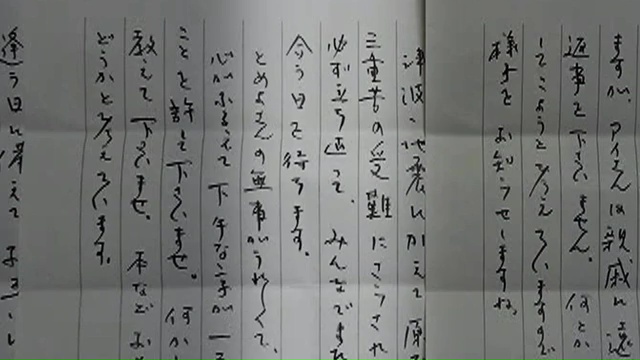 ますが、アイさんは親戚に遠
返事を下さいません。何とか
してこようと考えていますので
様子をお知らせしますね。
津波、地震にかえて原
三重苦の受難にさらされ
必ず立ち返って、みんなでまた
会う日を待ちます。
とめよさんの無事がうれしくて、
心がふるえて下手な字が一
ことを許して下さいませ。何か
教えて下さいませ。本などお
どうかと考えています。
逢う日に備えて